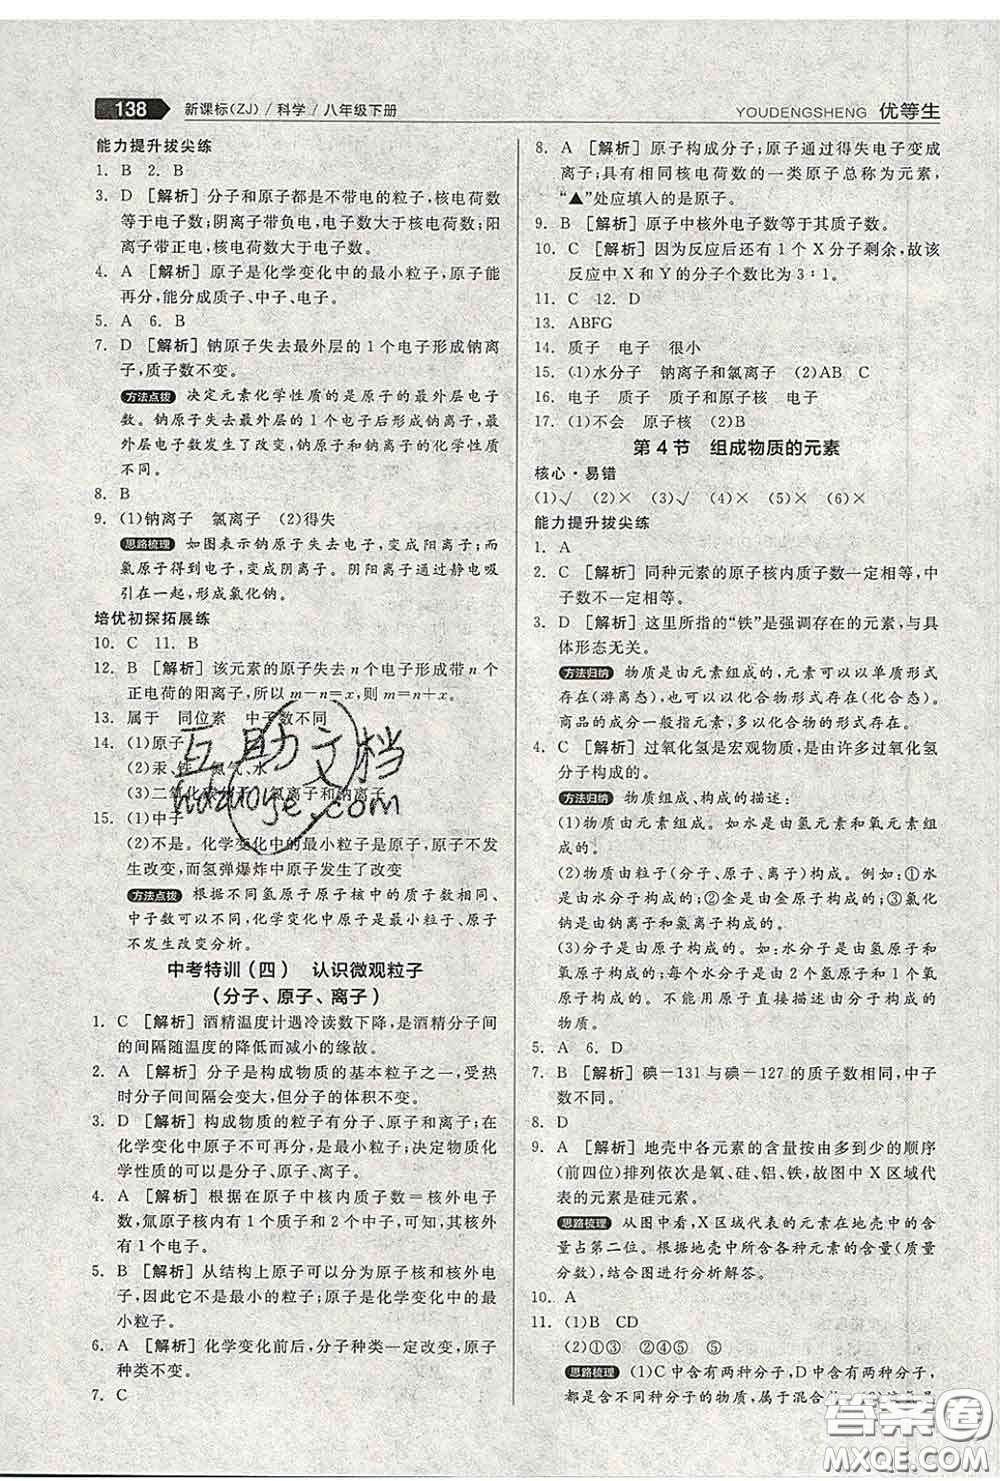 138 新课标(ZJ)/科学/八年级下册
YOUDENGSHENG 优等生
能力提升拔尖练
1. B 2. B
3. D [解析]分子和原子都是不带电的粒子,核电荷数
等于电子数;阴离子带负电,电子数大于核电荷数;阳
离子带正电,核电荷数大于电子数。
4. A [解析]原子是化学变化中的最小粒子,原子能
再分,能分成质子、中子、电子。
5. A 6. B
7. D [解析]钠原子失去最外层的1个电子形成钠离
子,质子数不变。
方法点拨 决定元素化学性质的是原子的最外层电子
数。钠原子失去最外层的1个电子后形成钠离子,最
外层电子数发生了改变,钠原子和钠离子的化学性质
不同。
8. B
9. (1)钠离子 氯离子 (2)得失
思路梳理 如图表示钠原子失去电子,变成阳离子;而
氯原子得到电子,变成阴离子。阴阳离子通过静电吸
引在一起,形成氯化钠。
培优初探拓展练
10. C 11. B
12. B [解析]该元素的原子失去n个电子形成带n个
正电荷的阳离子,所以m-n=x,则m=n+x。
13. 属于 同位素 中子数不同
14. (1)原子
(2)汞、铁 氮气、水
(3)二氧化碳 氯离子和钠离子
15. (1)中子
(2)不是。化学变化中的最小粒子是原子,原子不
发生改变,而氢弹爆炸中原子发生了改变
方法点拨 根据不同氢原子原子核中的质子数相同、
中子数可以不同,化学变化中原子是最小粒子、原子
不发生改变分析。
中考特训(四) 认识微观粒子
(分子、原子、离子)
1. C [解析]酒精温度计遇冷读数下降,是酒精分子间
的间隔随温度的降低而减小的缘故。
2. A [解析]分子是构成物质的基本粒子之一,受热
时分子间间隔会变大,但分子的体积不变。
3. D [解析]构成物质的粒子有分子、原子、离子;在
化学变化中原子不可再分,是最小粒子;决定物质化
学性质的可以是分子、原子、离子。
4. A [解析]根据在原子中核内质子数=核外电子
数,氚原子核内有1个质子和2个中子,可知,其核外
有1个电子。
5. B [解析]从结构上原子可分为原子核和核外电
子,因此它不是最小的粒子;原子是化学变化中的最
小粒子。
6. A [解析]化学变化前后,分子种类一定改变,原子
种类不变。
7. C
8. A [解析]原子构成分子;原子通过得失电子变成离
子;具有相同核电荷数的一类原子总称为元素,
“▲”处应填入的是原子。
9. B [解析]原子中核外电子数等于其质子数。
10. C [解析]因为反应后还有1个X分子剩余,故该
反应中X和Y的分子个数比为3:1。
11. C 12. D
13. ABFG
14. 质子 电子 很小
15. (1)水分子 钠离子和氯离子 (2)AB C
16. 电子 质子 质子和原子核 电子
17. (1)不会 原子核 (2)B
第4节 组成物质的元素
核心·易错
(1)√ (2)× (3)√ (4)× (5)× (6)×
能力提升拔尖练
1. A
2. C [解析]同种元素的原子核内质子数一定相等,中
子数不一定相等。
3. D [解析]这里所指的“铁”是强调存在的元素,与具
体形态无关。
方法归纳 物质是由元素组成的,元素可以以单质形式
存在(游离态),也可以以化合物形式存在(化合态)。
商品的成分一般指元素,元素多以化合物的形式存在。
4. C [解析]过氧化氢是宏观物质,是由许多过氧化氢
分子构成的。
方法归纳 物质组成、构成的描述:
(1)物质由元素组成。如水是由氢元素和氧元素组
成的。
(2)物质由粒子(分子、原子、离子)构成。例如:①水
是由水分子构成的;②金是由金原子构成的;③氯化
钠是由钠离子和氯离子构成的。
(3)分子是由原子构成的。如:水分子是由氢原子和
氧原子构成的;每个水分子是由2个氢原子和1个氧
原子构成的。不能用原子直接描述由分子构成的
物质。
5. A 6. D
7. B [解析]碘-131与碘-127的质子数相同,中子
数不同。
8. D
9. A [解析]地壳中各元素的含量按由多到少的顺序
(前四位)排列依次是氧、硅、铝、铁,故图中X区域代
表的元素是硅元素。
思路梳理 从图中看,X区域代表的元素在地壳中的含
量占第二位。根据地壳中所含各种元素的含量(质量
分数),结合图进行分析解答。
10. A
11. (1)B CD
(2)①③ ②④⑤ ⑤
思路梳理 (1)C中含有两种分子,D中含有两种分子,
都是含不同种分子的物质,属于混合
互助文档
huzuoye.com
答案圈
MXQE.COM